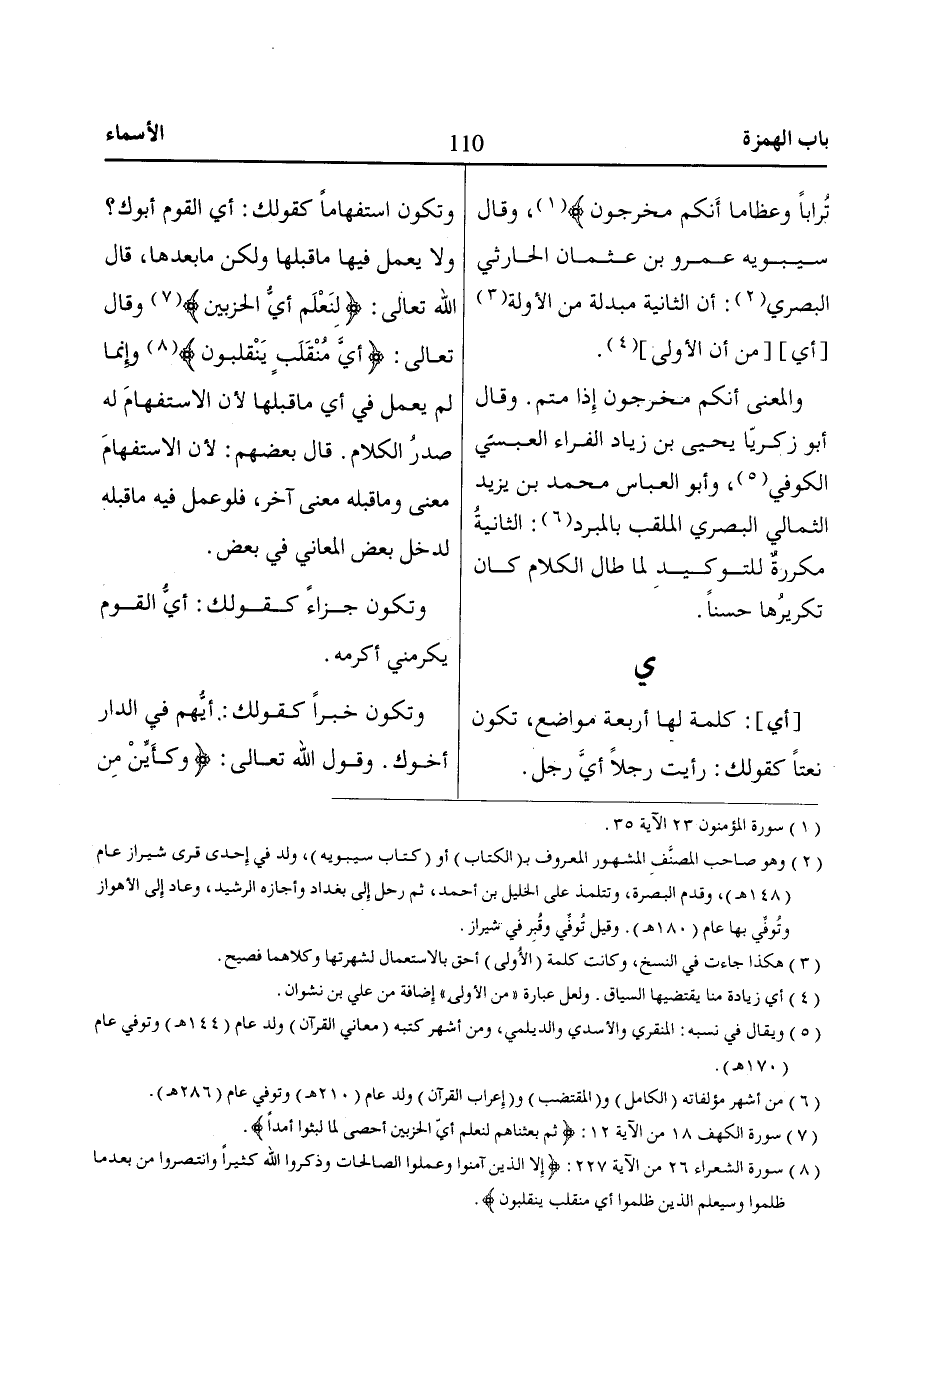 باب الهمزة
110
الأسماء
تُراباً وعظاما أَنكم مخرجون ﴾(١)، وقال
سيبويه عمرو بن عثمان الحارثي
البصري(٢): أن الثانية مبدلة من الأولة(٣)
[أي] [من أن الأولى](٤).
والمعنى أنكم مخرجون إذا متم. وقال
أبو زكريّا يحيى بن زياد الفراء العبسيّ
الكوفي(٥)، وأبو العباس محمد بن يزيد
الثمالي البصري الملقب بالمبرد(٦): الثانيةُ
مكررةٌ للتوكيد لما طال الكلام كان
تكريرُها حسناً.
ي
[أي]: كلمة لها أربعة مواضع، تكون
نعتاً كقولك: رأيت رجلاً أيَّ رجل.
وتكون استفهاماً كقولك: أي القوم أبوك؟
ولا يعمل فيها ماقبلها ولكن مابعدها، قال
الله تعالى: ﴿ لنَعْلَم أيُّ الحزبين ﴾(٧) وقال
تعالى: ﴿ أيَّ مُنْقَلَبٍ يَنْقلبون ﴾(٨) وإنما
لم يعمل في أي ماقبلها لأن الاستفهامَ له
صدرُ الكلام. قال بعضهم: لأن الاستفهامَ
معنى وماقبله معنى آخر، فلوعمل فيه ماقبله
لدخل بعض المعاني في بعض.
وتكون جزاءً كقولك: أيُّ القوم
يكرمني أكرمه.
وتكون خبراً كقولك: أيُّهم في الدار
أخوك. وقول الله تعالى: ﴿ وكأَيِّنْ من
(١) سورة المؤمنون ٢٣ الآية ٣٥.
(٢) وهو صاحب المصنَّف المشهور المعروف بـ(الكتاب) أو (كتاب سيبويه)، ولد في إحدى قرى شيراز عام
(١٤٨هـ)، وقدم البصرة، وتتلمذ على الخليل بن أحمد، ثم رحل إلى بغداد وأجازه الرشيد، وعاد إلى الأهواز
وتُوفِّي بها عام (١٨٠هـ). وقيل تُوفِّي وقُبِر في شيراز.
(٣) هكذا جاءت في النسخ، وكانت كلمة (الأولى) أحق بالاستعمال لشهرتها وكلاهما فصيح.
(٤) أي زيادة منا يقتضيها السياق. ولعل عبارة «من الأولى» إضافة من علي بن نشوان.
(٥) ويقال في نسبه: المنقري والأسدي والديلمي، ومن أشهر كتبه (معاني القرآن) ولد عام (١٤٤هـ) وتوفي عام
(١٧٠هـ).
(٦) من أشهر مؤلفاته (الكامل) و(المقتضب) و(إعراب القرآن) ولد عام (٢١٠هـ) وتوفي عام (٢٨٦هـ).
(٧) سورة الكهف ١٨ من الآية ١٢: ﴿ ثم بعثناهم لنعلم أيّ الحزبين أحصى لما لبثوا أمداً ﴾.
(٨) سورة الشعراء ٢٦ من الآية ٢٢٧: ﴿ إلا الذين آمنوا وعملوا الصالحات وذكروا الله كثيراً وانتصروا من بعدما
ظلموا وسيعلم الذين ظلموا أي منقلب ينقلبون ﴾.